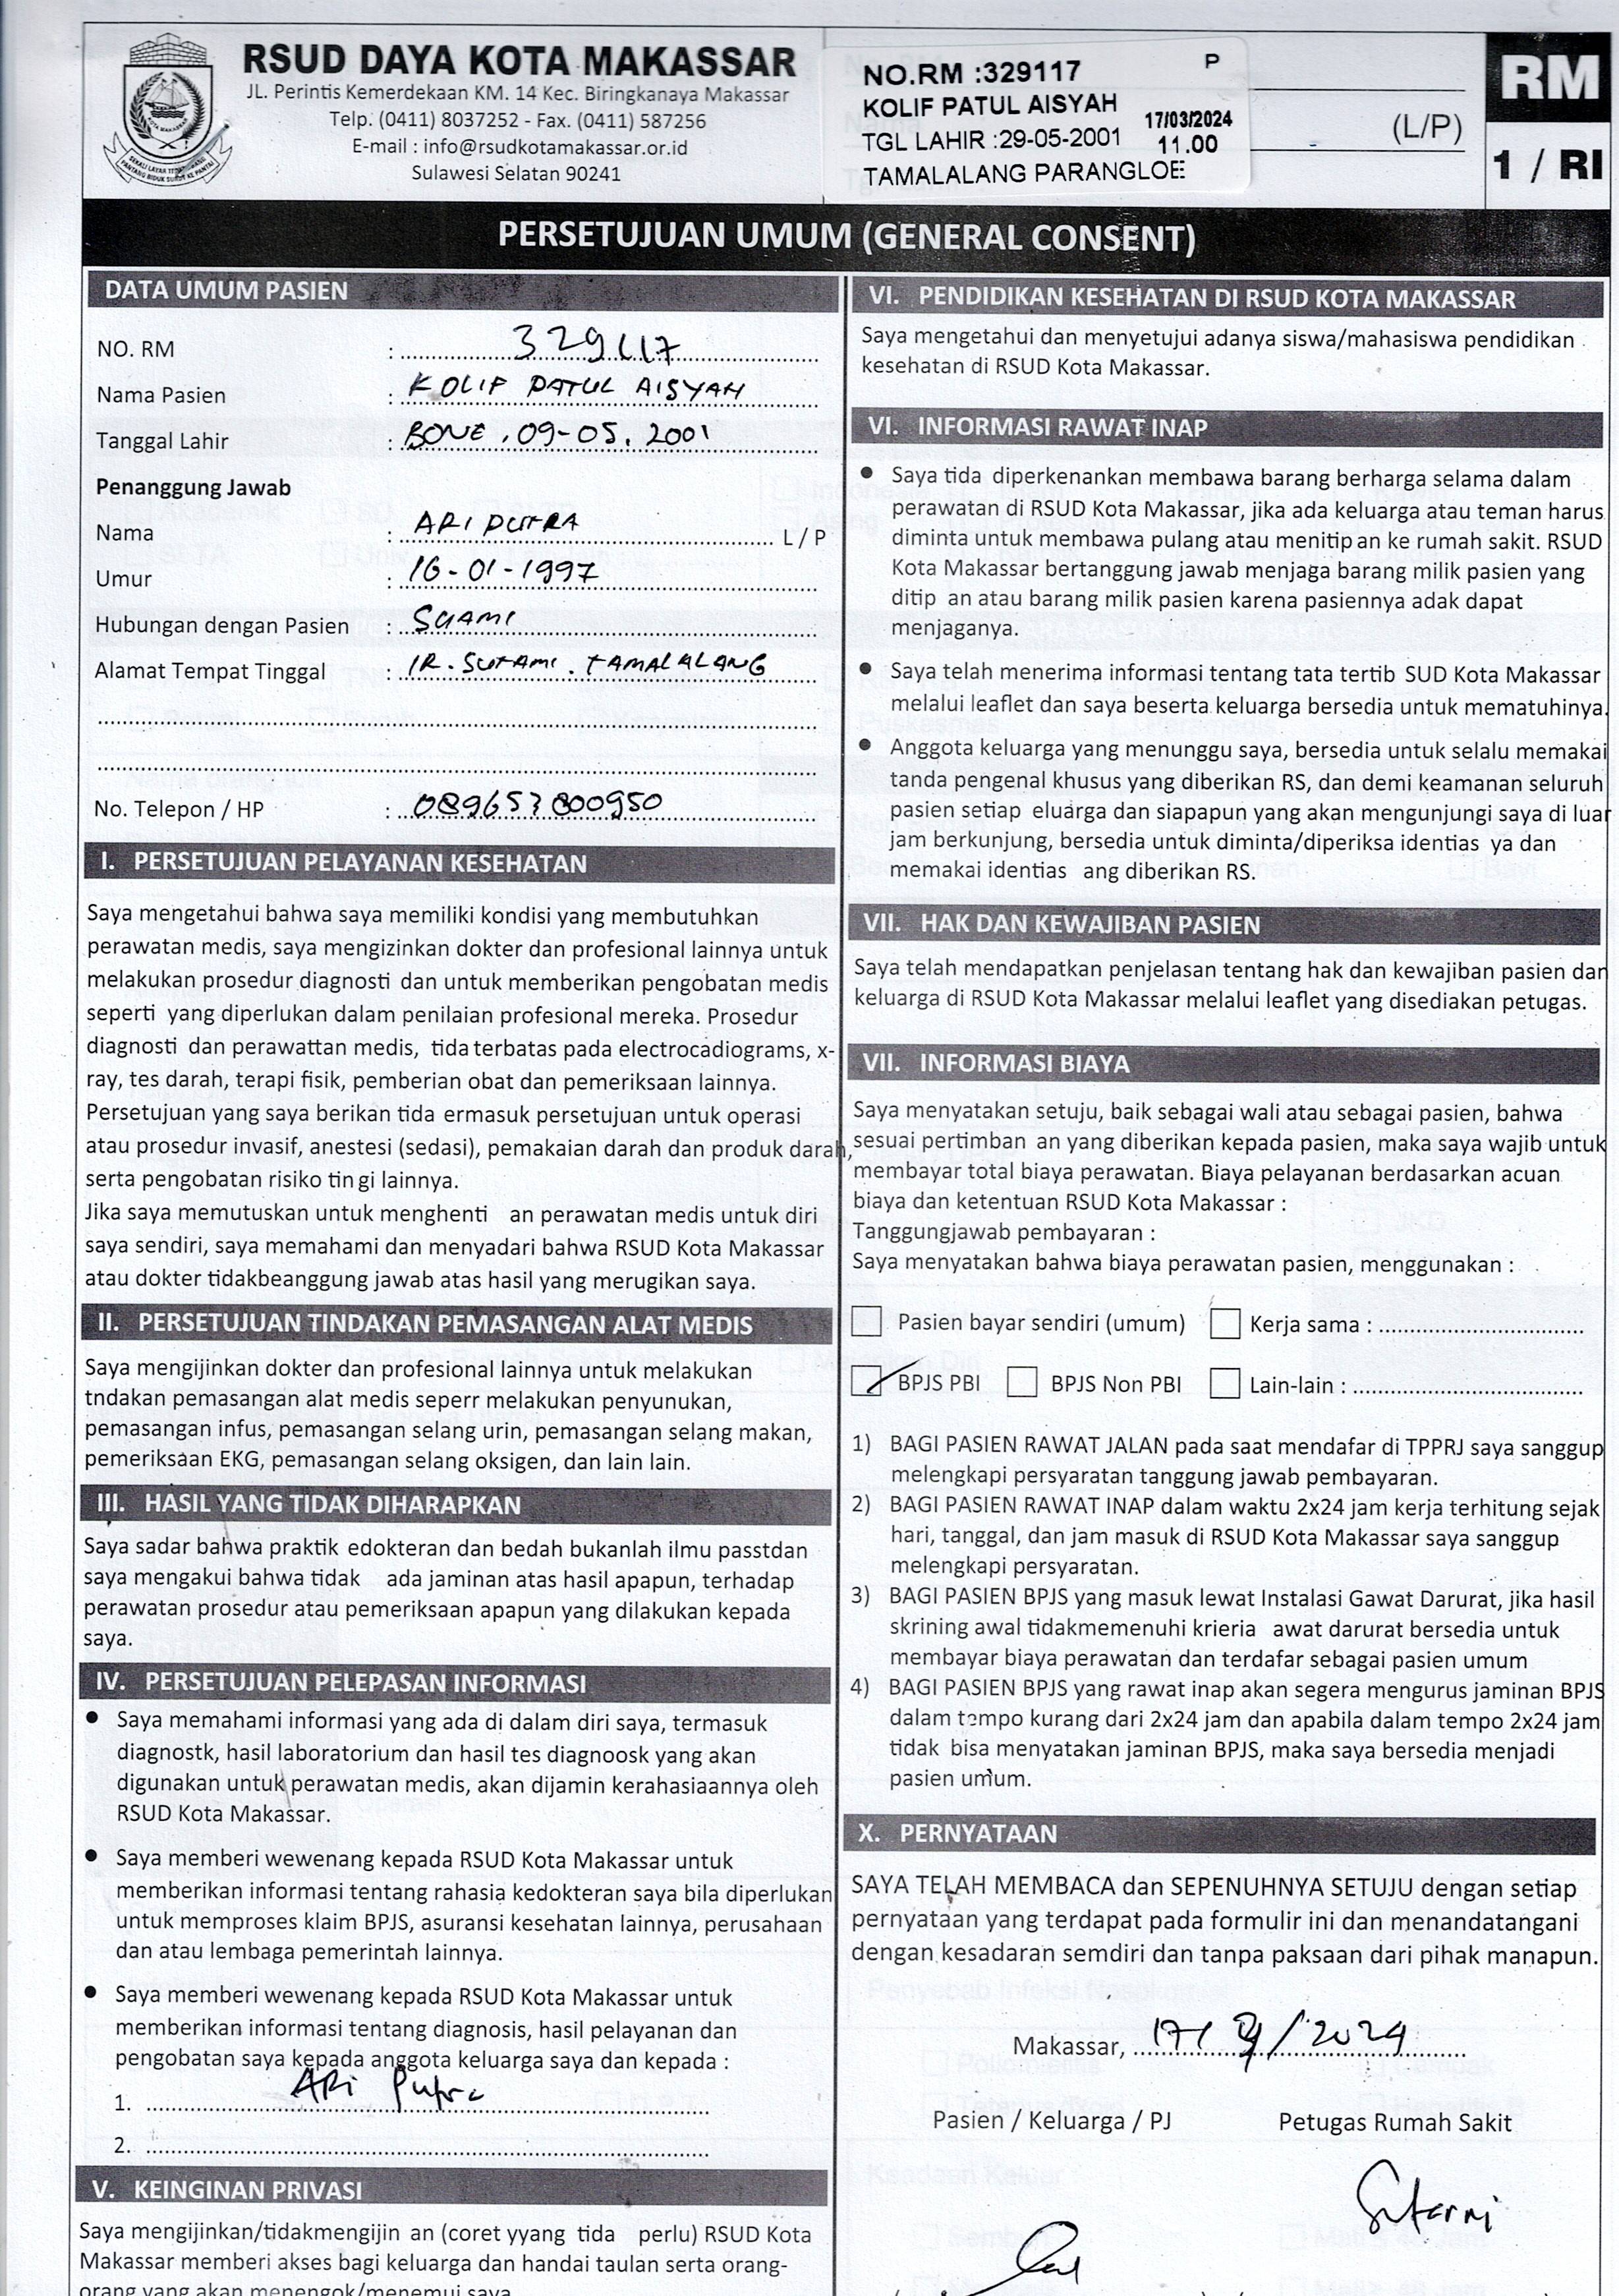 RSUD DAYA KOTA MAKASSAR
JL. Perintis Kemerdekaan KM. 14 Kec. Biringkanaya Makassar
Telp. (0411) 8037252 - Fax. (0411) 587256
E-mail : info@rsudkotamakassar.or.id
Sulawesi Selatan 90241
NO.RM :329117 P
KOLIF PATUL AISYAH 17/03/2024
TGL LAHIR :29-05-2001 11.00
TAMALALANG PARANGLOE
(L/P)
RM
1 / RI
PERSETUJUAN UMUM (GENERAL CONSENT)
DATA UMUM PASIEN
NO. RM : 329117
Nama Pasien : KOLIF PATUL AISYAH
Tanggal Lahir : BONE, 09-05. 2001
Penanggung Jawab
Nama : ARI PUTRA L / P
Umur : 16-01-1997
Hubungan dengan Pasien : SUAMI
Alamat Tempat Tinggal : IR. SUTAMI. TAMALALANG
No. Telepon / HP : 089653800950
I. PERSETUJUAN PELAYANAN KESEHATAN
Saya mengetahui bahwa saya memiliki kondisi yang membutuhkan
perawatan medis, saya mengizinkan dokter dan profesional lainnya untuk
melakukan prosedur diagnosti dan untuk memberikan pengobatan medis
seperti yang diperlukan dalam penilaian profesional mereka. Prosedur
diagnosti dan perawattan medis, tida terbatas pada electrocadiograms, x-
ray, tes darah, terapi fisik, pemberian obat dan pemeriksaan lainnya.
Persetujuan yang saya berikan tida ermasuk persetujuan untuk operasi
atau prosedur invasif, anestesi (sedasi), pemakaian darah dan produk darah,
serta pengobatan risiko tin gi lainnya.
Jika saya memutuskan untuk menghenti an perawatan medis untuk diri
saya sendiri, saya memahami dan menyadari bahwa RSUD Kota Makassar
atau dokter tidakbeanggung jawab atas hasil yang merugikan saya.
II. PERSETUJUAN TINDAKAN PEMASANGAN ALAT MEDIS
Saya mengijinkan dokter dan profesional lainnya untuk melakukan
tndakan pemasangan alat medis seperr melakukan penyunukan,
pemasangan infus, pemasangan selang urin, pemasangan selang makan,
pemeriksaan EKG, pemasangan selang oksigen, dan lain lain.
III. HASIL YANG TIDAK DIHARAPKAN
Saya sadar bahwa praktik edokteran dan bedah bukanlah ilmu passtdan
saya mengakui bahwa tidak ada jaminan atas hasil apapun, terhadap
perawatan prosedur atau pemeriksaan apapun yang dilakukan kepada
saya.
IV. PERSETUJUAN PELEPASAN INFORMASI
• Saya memahami informasi yang ada di dalam diri saya, termasuk
diagnostk, hasil laboratorium dan hasil tes diagnoosk yang akan
digunakan untuk perawatan medis, akan dijamin kerahasiaannya oleh
RSUD Kota Makassar.
• Saya memberi wewenang kepada RSUD Kota Makassar untuk
memberikan informasi tentang rahasia kedokteran saya bila diperlukan
untuk memproses klaim BPJS, asuransi kesehatan lainnya, perusahaan
dan atau lembaga pemerintah lainnya.
• Saya memberi wewenang kepada RSUD Kota Makassar untuk
memberikan informasi tentang diagnosis, hasil pelayanan dan
pengobatan saya kepada anggota keluarga saya dan kepada :
1. ARi Putra
2.
V. KEINGINAN PRIVASI
Saya mengijinkan/tidakmengijin an (coret yyang tida perlu) RSUD Kota
Makassar memberi akses bagi keluarga dan handai taulan serta orang-
orang yang akan menengok/menemui saya
VI. PENDIDIKAN KESEHATAN DI RSUD KOTA MAKASSAR
Saya mengetahui dan menyetujui adanya siswa/mahasiswa pendidikan
kesehatan di RSUD Kota Makassar.
VI. INFORMASI RAWAT INAP
• Saya tida diperkenankan membawa barang berharga selama dalam
perawatan di RSUD Kota Makassar, jika ada keluarga atau teman harus
diminta untuk membawa pulang atau menitip an ke rumah sakit. RSUD
Kota Makassar bertanggung jawab menjaga barang milik pasien yang
ditip an atau barang milik pasien karena pasiennya adak dapat
menjaganya.
• Saya telah menerima informasi tentang tata tertib SUD Kota Makassar
melalui leaflet dan saya beserta keluarga bersedia untuk mematuhinya.
• Anggota keluarga yang menunggu saya, bersedia untuk selalu memakai
tanda pengenal khusus yang diberikan RS, dan demi keamanan seluruh
pasien setiap eluarga dan siapapun yang akan mengunjungi saya di luar
jam berkunjung, bersedia untuk diminta/diperiksa identias ya dan
memakai identias ang diberikan RS.
VII. HAK DAN KEWAJIBAN PASIEN
Saya telah mendapatkan penjelasan tentang hak dan kewajiban pasien dan
keluarga di RSUD Kota Makassar melalui leaflet yang disediakan petugas.
VII. INFORMASI BIAYA
Saya menyatakan setuju, baik sebagai wali atau sebagai pasien, bahwa
sesuai pertimban an yang diberikan kepada pasien, maka saya wajib untuk
membayar total biaya perawatan. Biaya pelayanan berdasarkan acuan
biaya dan ketentuan RSUD Kota Makassar :
Tanggungjawab pembayaran :
Saya menyatakan bahwa biaya perawatan pasien, menggunakan :
Pasien bayar sendiri (umum) Kerja sama :
BPJS PBI BPJS Non PBI Lain-lain :
1) BAGI PASIEN RAWAT JALAN pada saat mendafar di TPPRJ saya sanggup
melengkapi persyaratan tanggung jawab pembayaran.
2) BAGI PASIEN RAWAT INAP dalam waktu 2x24 jam kerja terhitung sejak
hari, tanggal, dan jam masuk di RSUD Kota Makassar saya sanggup
melengkapi persyaratan.
3) BAGI PASIEN BPJS yang masuk lewat Instalasi Gawat Darurat, jika hasil
skrining awal tidakmemenuhi krieria awat darurat bersedia untuk
membayar biaya perawatan dan terdafar sebagai pasien umum
4) BAGI PASIEN BPJS yang rawat inap akan segera mengurus jaminan BPJS
dalam tempo kurang dari 2x24 jam dan apabila dalam tempo 2x24 jam
tidak bisa menyatakan jaminan BPJS, maka saya bersedia menjadi
pasien umum.
X. PERNYATAAN
SAYA TELAH MEMBACA dan SEPENUHNYA SETUJU dengan setiap
pernyataan yang terdapat pada formulir ini dan menandatangani
dengan kesadaran semdiri dan tanpa paksaan dari pihak manapun.
Makassar, 17/ /2024
Pasien / Keluarga / PJ Petugas Rumah Sakit